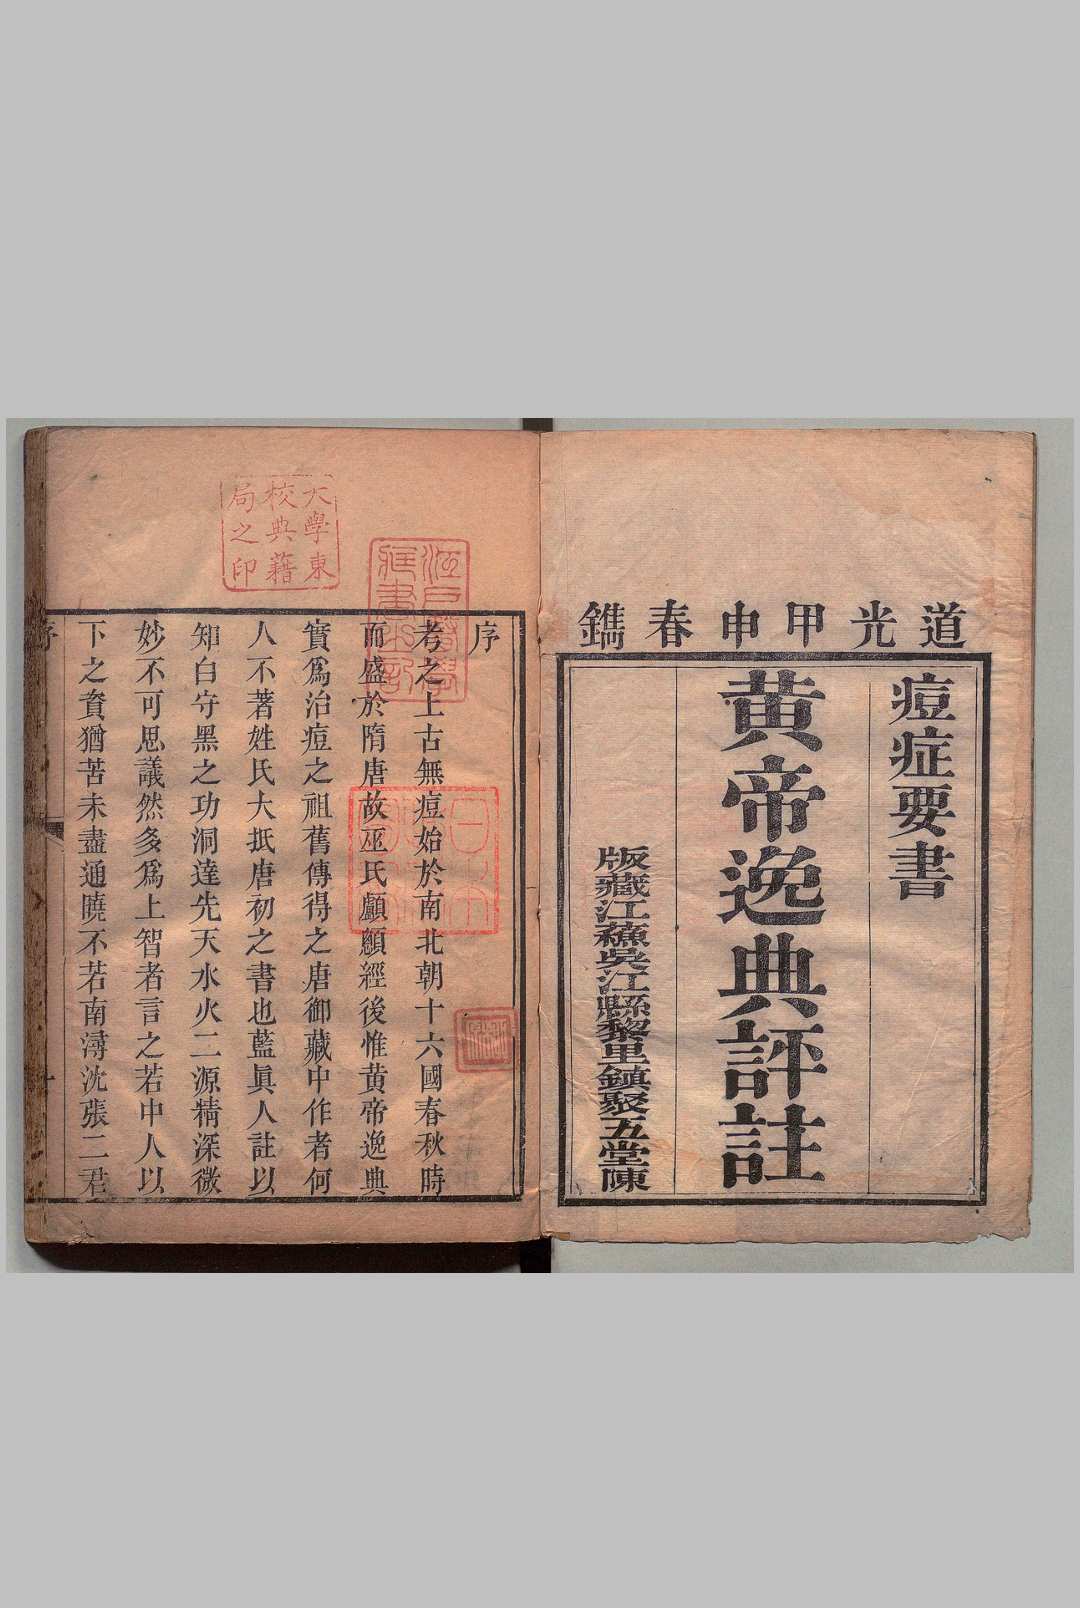 道光甲申春鐫
痘症要書
黃帝逸典評註
版藏江蘇吳江縣黎里鎮聚五堂陳
序
考之上古無痘始於南北朝十六國春秋時
而盛於隋唐故巫氏顱顖經後惟黃帝逸典
實爲治痘之祖舊傳得之唐御藏中作者何
人不著姓氏大抵唐初之書也藍眞人註以
知白守黑之功洞達先天水火二源精深微
妙不可思議然多爲上智者言之若中人以
下之資猶苦未盡通曉不若南潯沈張二君
序
一
大學東
校典藉
局之印
江戶醫學
藏書之記